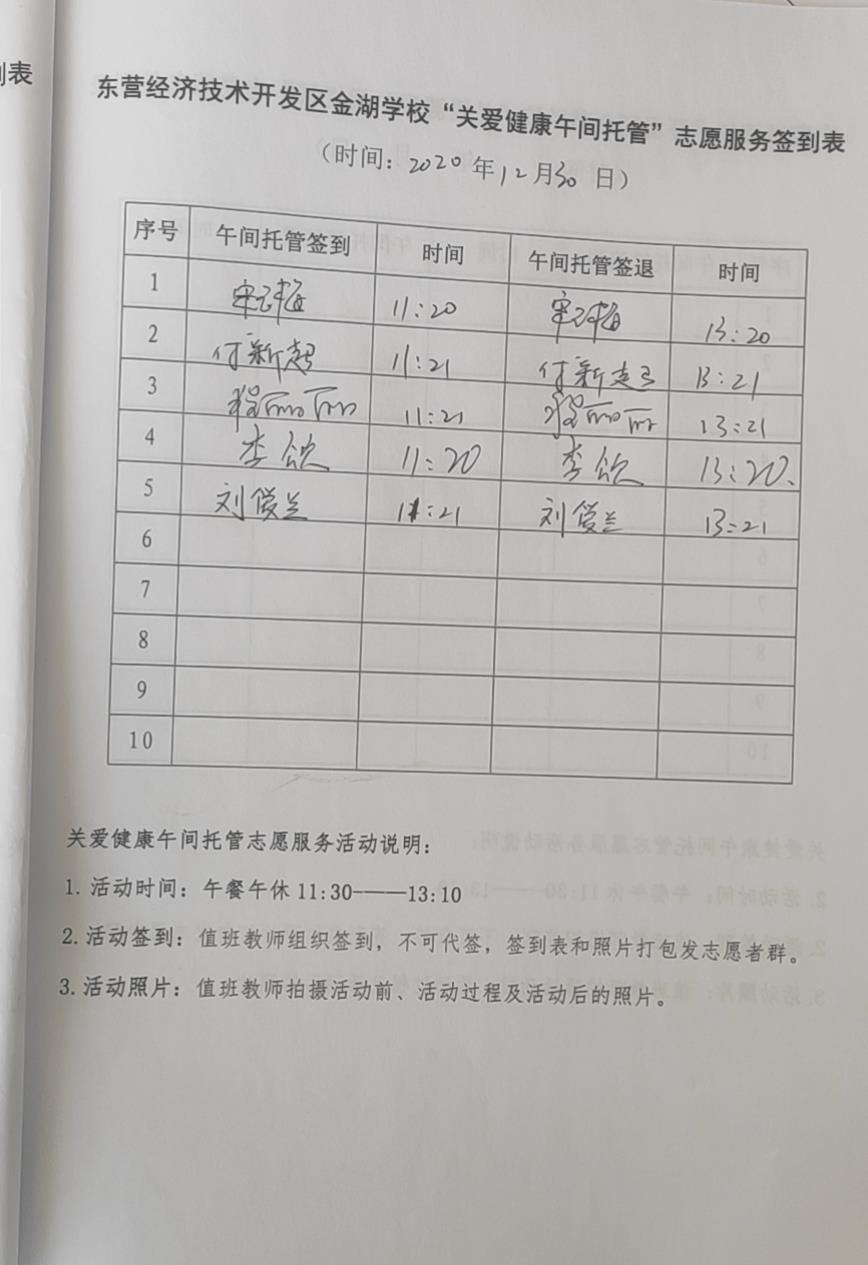 到表
东营经济技术开发区金湖学校“关爱健康午间托管”志愿服务签到表
（时间：2020年12月30日）
序号 午间托管签到 时间 午间托管签退 时间
1 11:20 13:20
2 付新起 11:21 付新起 13:21
3 程丽丽 11:21 程丽丽 13:21
4 李欣 11:20 李欣 13:20.
5 刘俊兰 11:21 刘俊兰 13:21
6
7
8
9
10
关爱健康午间托管志愿服务活动说明：
1. 活动时间：午餐午休 11:30-——13:10
2. 活动签到：值班教师组织签到，不可代签，签到表和照片打包发志愿者群。
3. 活动照片：值班教师拍摄活动前、活动过程及活动后的照片。